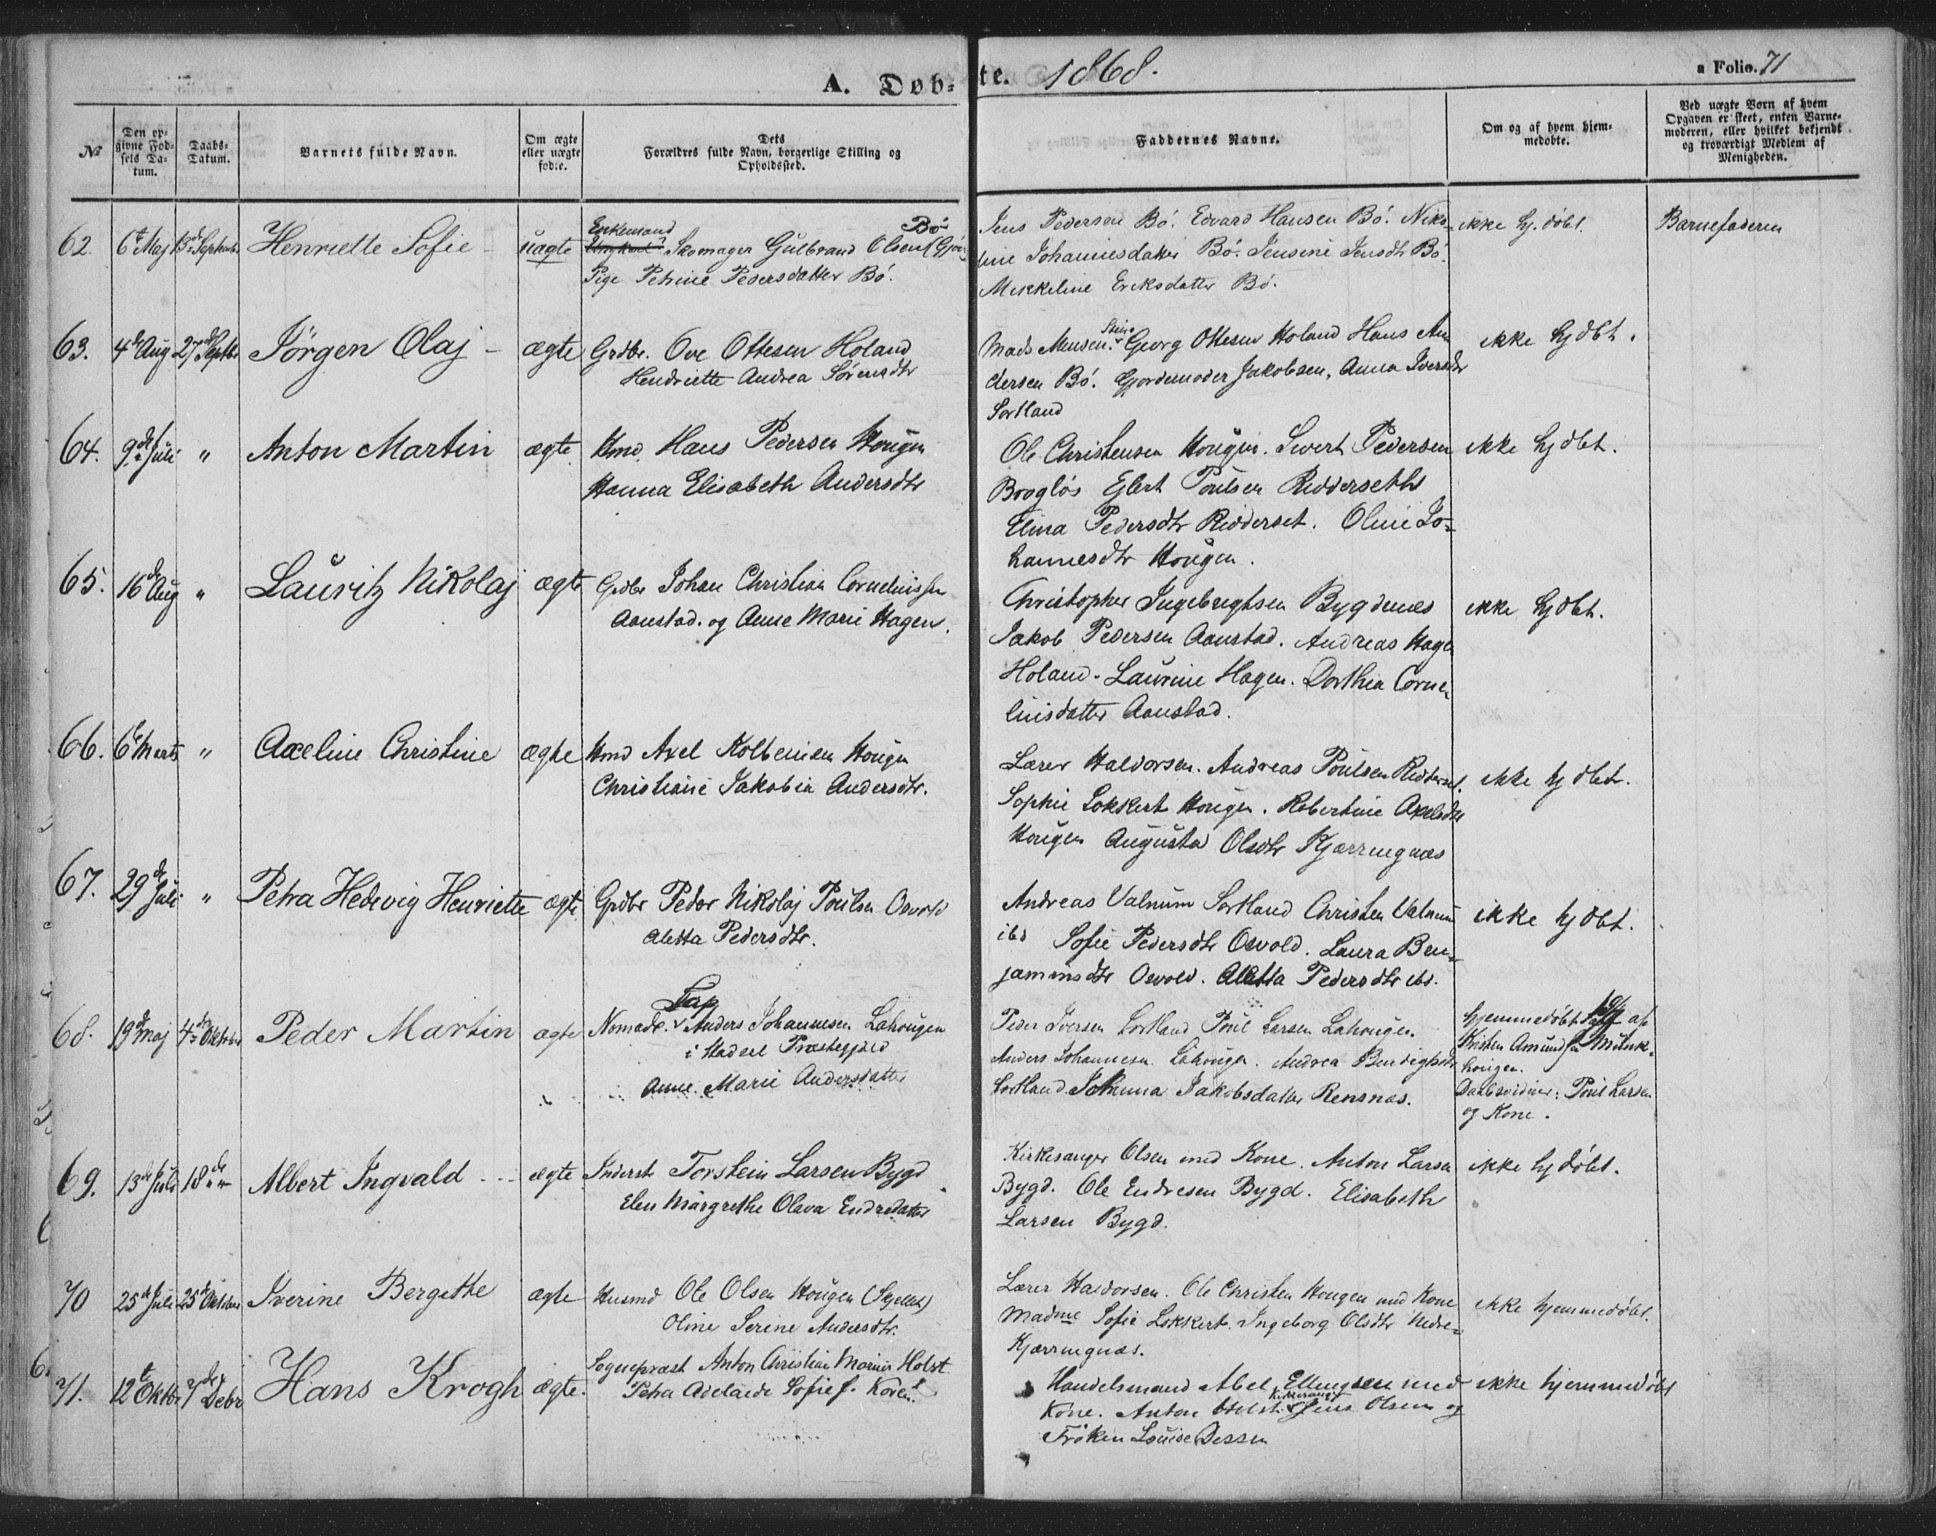 A. Døb-te. 1868.
a Folio. 71
No
Den opgivne Fødsels Datum.
Daabs-Datum.
Barnets fulde Navn.
Om ægte eller uægte fødte.
Dets Forældres fulde Navn, borgerlige Stilling og Opholdssted.
Faddernes Navne.
Om og af hvem hjemmedøbte.
Ved uægte Børn af hvem Opgaven er skeet, enten Barnemoderen, eller hvilket bekjendt og troværdigt Medlem af Menigheden.
62. 6t Maj 13de Septembr Henriette Sofie - uægte
Enkemand Skomager Gulbrand Olsen Bø
Pige Petrine Pedersdatter Bø.
Jens Pedersen Bø. Edvard Hansen Bø. Niko-
line Johannesdatter Bø. Jensine Jensdtr Bø.
Mikkeline Eriksdatter Bø.
ikke hj. døbt.
Barnefaderen
63. 4de Aug 27de Septbr Jørgen Olaj - ægte
Grdbr. Ove Ottesen Holand
Hendriette Andrea Sørensdtr
Mads Mensen. Georg Ottesen Holand Hans An
dersen Bø. Gjordemoder Jakobsen, Anna Iversdtr
Sortland
ikke hjdøbt.
64. 9de Juli " Anton Martin ægte.
Hmd. Hans Pedersen Hougen
Hanna Elisabeth Andersdtr
Ole Christensen Hougen. Sivert Pedersen
Brogløs Ejlert Poulsen Ridderseth
Elina Pedersdtr Ridderset. Oline Jo-
hannesdtr Hougen.
ikke hjdøbt.
65. 16de Aug " Lauritz Nikolaj ægte
Grdbr Johan Christian Corneliussen
Aanstad. og Anne Marie Hagen.
Christopher Ingebrightsen Bygdenes
Jakob Pedersen Aanstad. Andreas Hagen
Holand. Laurine Hagen. Dorthea Corne-
liusdatter Aanstad.
ikke hjdøbt.
66. 6t Marts " Axeline Christine ægte
Hmd Axel Kolbeinsen Hougen
Christiane Jakobia Andersdtr.
Lærer Haldorsen. Andreas Poulsen Ridderset.
Sophie Lokkert Hougen. Robertine Axelsdtr
Hougen Augusta Olsdtr Kjærringnæs
ikke hjdøbt.
67. 29de Juli " Petra Hedevig Henriette ægte
Grdbr Peder Nikolaj Poulsen Osvold
Aletta Pedersdtr.
Andreas Valnum Sortland Christen Valnum
ibd Sofie Pedersdtr Osvold. Laura Ben-
jaminsdtr Osvold. Aletta Pedersdtr ibd.
ikke hjdøbt.
68. 19de Maj 4de Oktober Peder Martin ægte
Nomade. Lap Anders Johannesen Lahougen
i Hadsel Præstegjeld
Anne Marie Andersdatter
Peder Iversen Sortland Poul Larsen Lahougen.
Anders Johannesen Lahougen. Andrea Bendigtsdtr
Sortland. Johanna Jakobsdatter Rensnæs.
hjemmedøbt af
Kristen Amundsen
hougen.
Daabsvidner: Poul Larsen
og Kone.
69. 13de Juli 18de " Albert Ingvald - - ægte
Inderst Torstein Larsen Bygd
Elen Margrethe Olava Endredatter
Kirkesanger Olsen med Kone. Anton Larsen
Bygd. Ole Endresen Bygd. Elisabeth
Larsen Bygd.
ikke hjdøbt.
70 25de Juli 25de Oktober Iverine Bergitte ægte
Husmd Ole Olsen Hougen
Oline Serine Andersdtr.
Lærer Haldorsen. Ole Christen Hougen med Kone
Madme Sofie Lokkert. Ingeborg Olsdtr Nedre-
Kjærringnæs.
ikke hjemmedøbt.
71. 12te Oktbr 7de Debr Hans Krogh ægte.
Sognepræst Anton Christian Marius Holst
Petra Adelaide Sofie f. Koren
Handelsmand Abel Ellingsen med
Kone. Anton Holst. Kirkesanger Jens Olsen og
Frøken Louise Dessen
ikke hjemmedøbt